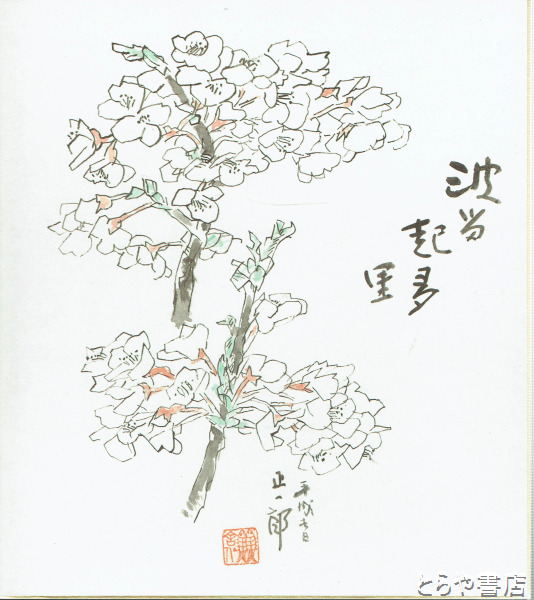 波留
起多
里
平成
正一郎
とらや書店